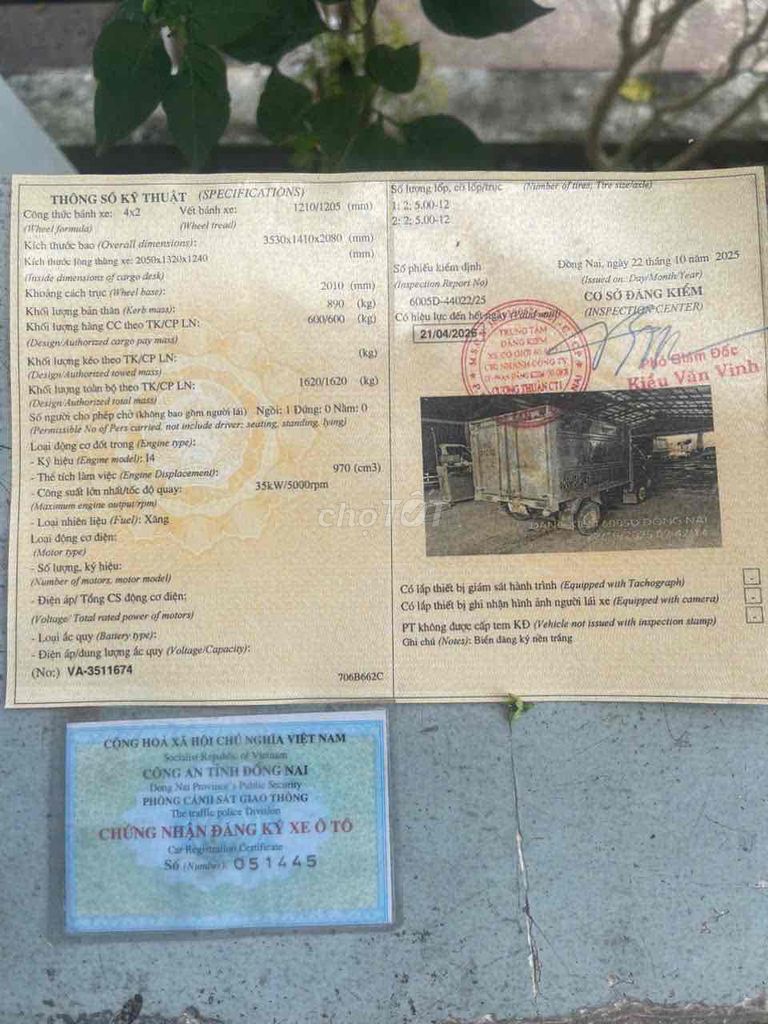 THÔNG SỐ KỸ THUẬT (SPECIFICATIONS)
Công thức bánh xe: 4x2 Vết bánh xe: 1210/1205 (mm)
(Wheel formula) (Wheel tread)
Kích thước bao (Overall dimensions): 3530x1410x2080 (mm)
Kích thước lòng thùng xe: 2050x1320x1240 (mm)
(Inside dimensions of cargo desk)
Khoảng cách trục (Wheel base): 2010 (mm)
Khối lượng bản thân (Kerb mass): 890 (kg)
Khối lượng hàng CC theo TK/CP LN: 600/600 (kg)
(Design/Authorized cargo pay mass)
Khối lượng kéo theo TK/CP LN: (kg)
(Design/Authorized towed mass)
Khối lượng toàn bộ theo TK/CP LN: 1620/1620 (kg)
(Design/Authorized total mass)
Số người cho phép chở (không bao gồm người lái) Ngồi: 1 Đứng: 0 Nằm: 0
(Permissible No of Pers carried, not include driver: seating, standing, lying)
Loại động cơ đốt trong (Engine type):
- Ký hiệu (Engine model): I4
- Thể tích làm việc (Engine Displacement): 970 (cm3)
- Công suất lớn nhất/tốc độ quay: 35kW/5000rpm
(Maximum engine output/rpm)
- Loại nhiên liệu (Fuel): Xăng
Loại động cơ điện:
(Motor type)
- Số lượng, ký hiệu:
(Number of motors, motor model)
- Điện áp/ Tổng CS động cơ điện:
(Voltage/ Total rated power of motors)
- Loại ắc quy (Battery type):
- Điện áp/dung lượng ắc quy (Voltage/Capacity):
(No:) VA-3511674 706B662C
Số lượng lốp, cỡ lốp/trục (Number of tires; Tire size/axle)
1: 2; 5.00-12
2: 2; 5.00-12
Số phiếu kiểm định
(Inspection Report No)
6005D-44022/25
Có hiệu lực đến hết ngày (Valid until)
21/04/2026
Đồng Nai, ngày 22 tháng 10 năm 2025
(Issued on: Day/Month/Year)
CƠ SỞ ĐĂNG KIỂM
(INSPECTION CENTER)
TRUNG TÂM
ĐĂNG KIỂM
CHI NHÁNH CÔNG TY
CƯỜNG THUẬN CTI
Phó Giám Đốc
Kiều Văn Vinh
chợTỐT
Có lắp thiết bị giám sát hành trình (Equipped with Tachograph)
Có lắp thiết bị ghi nhận hình ảnh người lái xe (Equipped with camera)
PT không được cấp tem KĐ (Vehicle not issued with inspection stamp)
Ghi chú (Notes): Biển đăng ký nền trắng
CỘNG HOÀ XÃ HỘI CHỦ NGHĨA VIỆT NAM
Socialist Republic of Vietnam
CÔNG AN TỈNH ĐỒNG NAI
Dong Nai Province's Public Security
PHÒNG CẢNH SÁT GIAO THÔNG
The traffic police Division
CHỨNG NHẬN ĐĂNG KÝ XE Ô TÔ
Car Registration Certificate
Số (Number): 051445